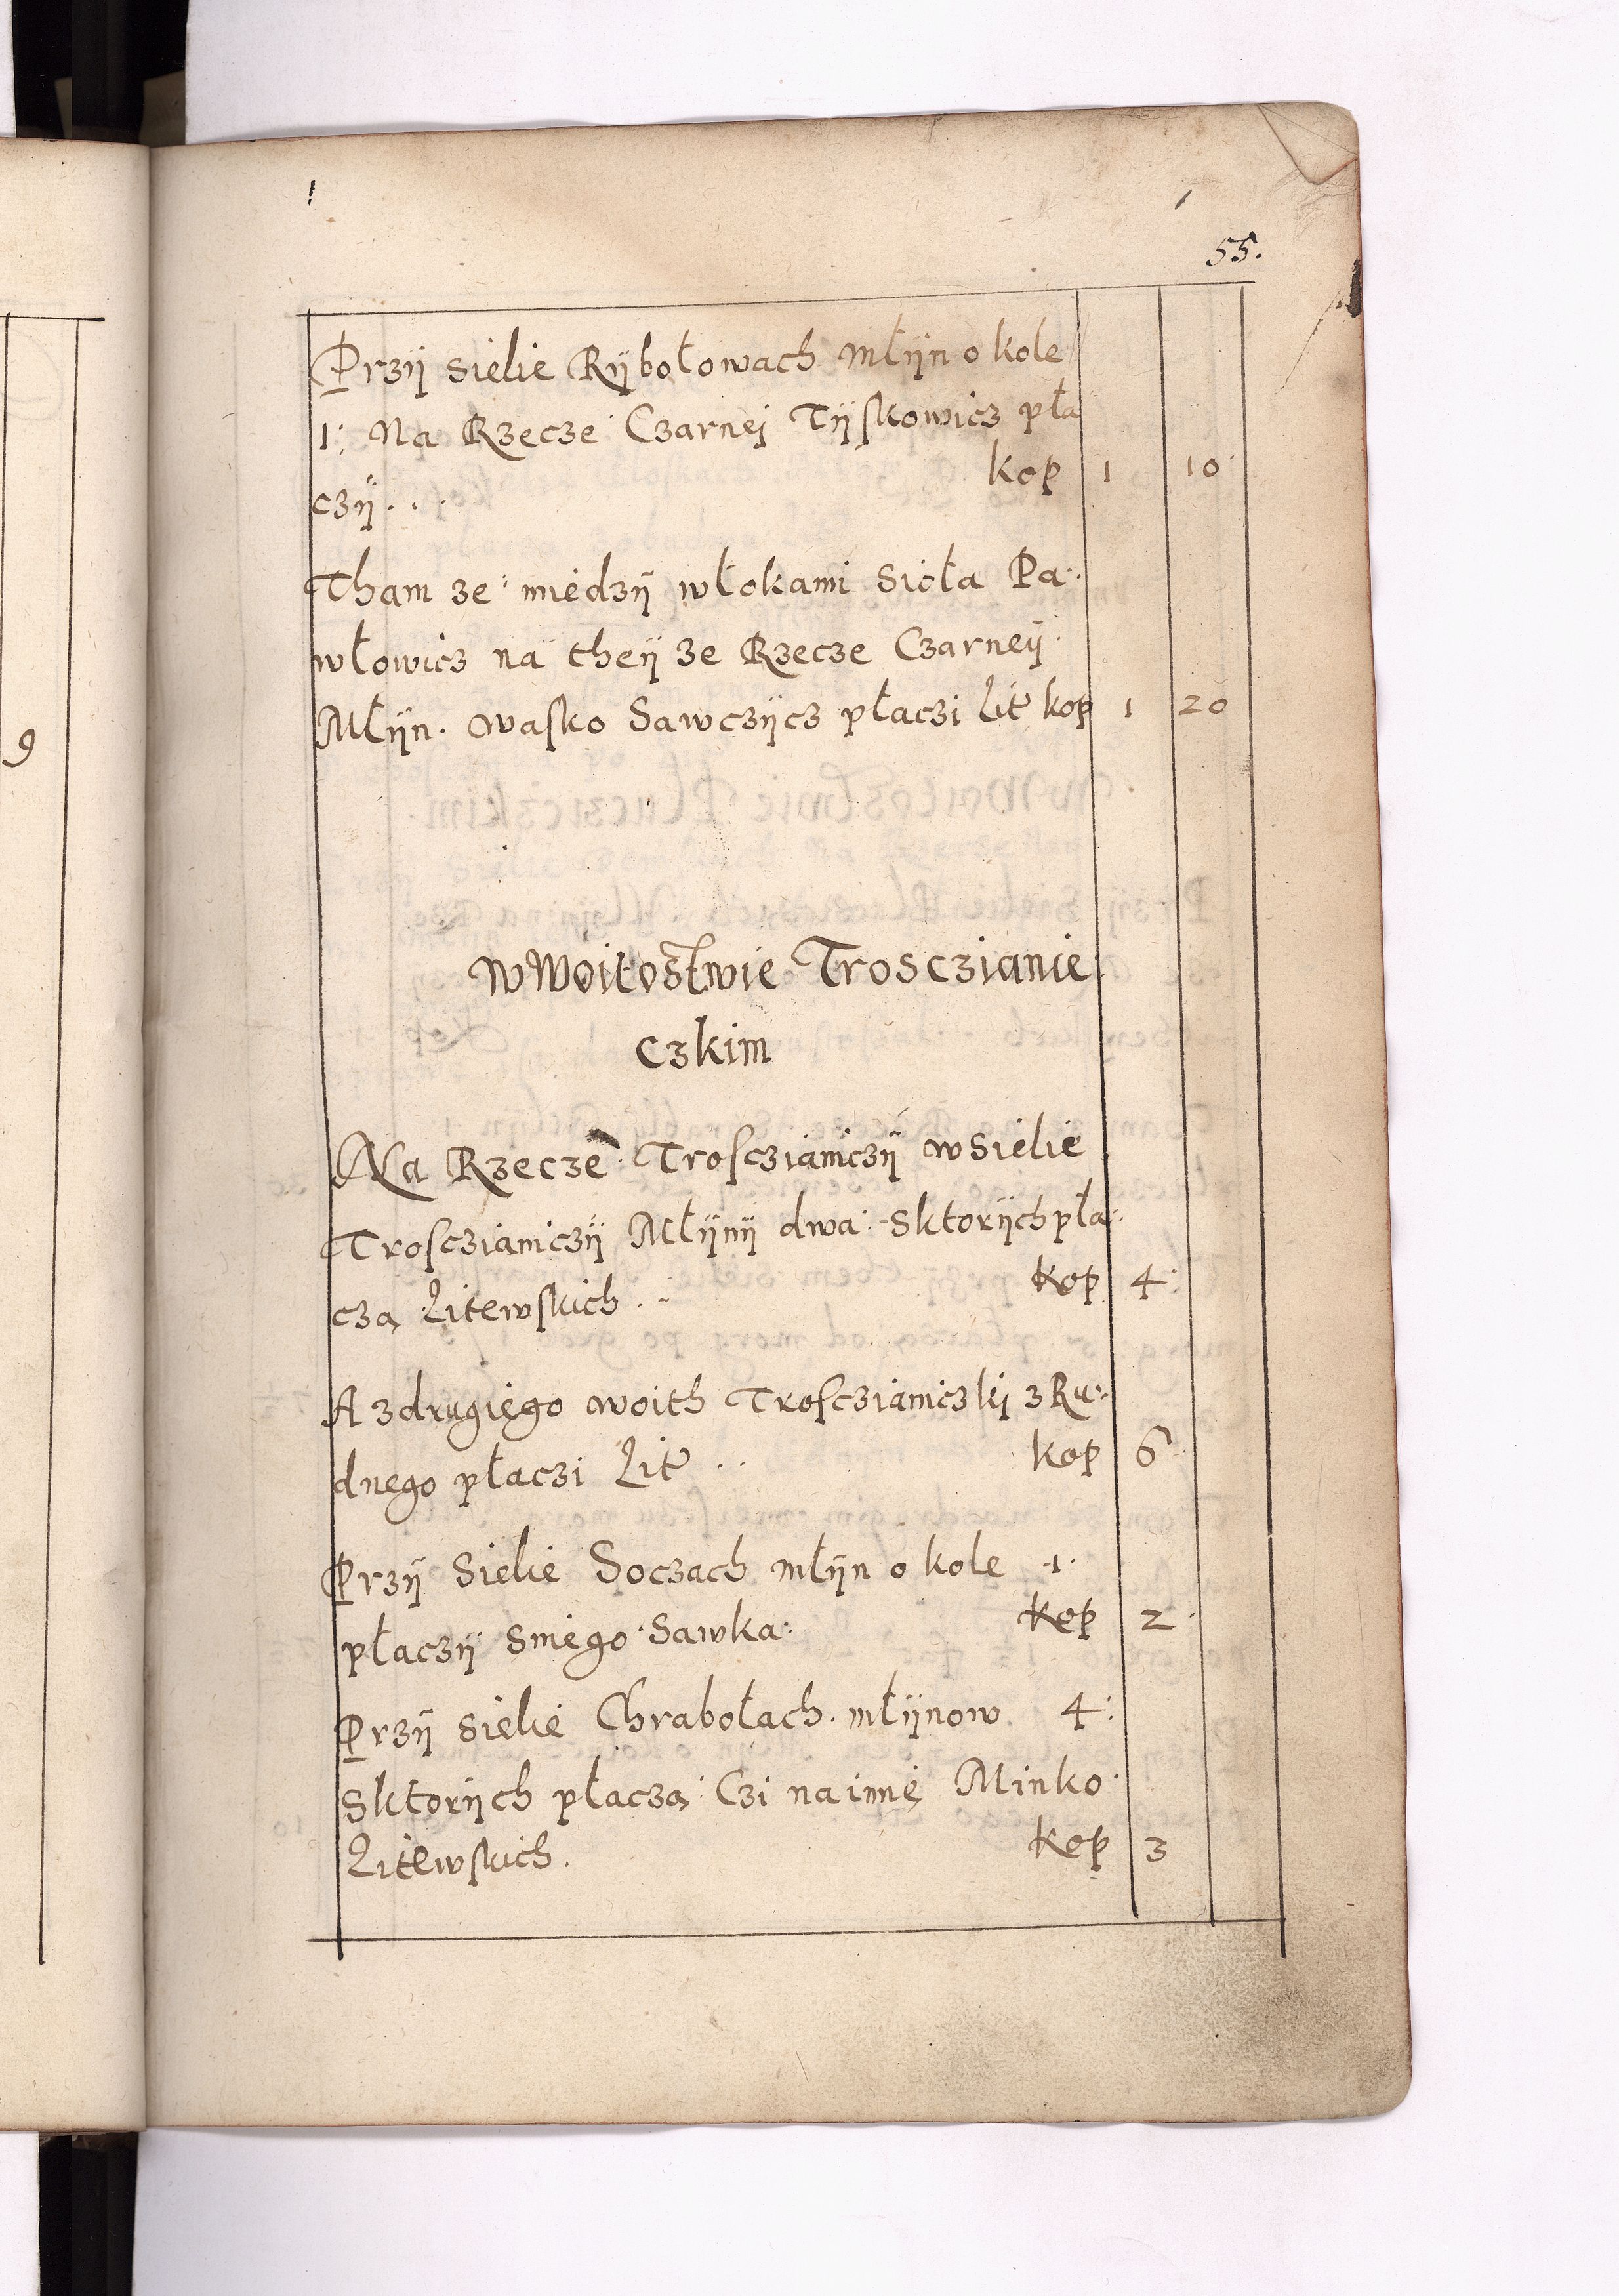 55.
Przÿ sielie Rÿbołowach młÿn o kole
1: Na Rzecze Czarnej Tÿskowicz pła
czÿ . . . kop 1 10
Tham ze miedzÿ włokami Sioła Pa:
włowicz na theÿ ze Rzecze Czarneÿ
Młÿn. Wasko Sawczÿcz płaczi Lit kop 1 20
W Woitostwie Trosczianie
czkim
Na Rzecze Troscziańiczÿ w sielie
Troscziańiczÿ Młÿnÿ dwa: sktorÿch pła:
czą Litewskich . - kop 4:
A zdrugiego woith Troscziańiczki z Ru:
dnego płaczi Lit . . kop 6
Przÿ Sielie Soczach młÿn o kole 1.
płaczÿ sniego Sawka: kop 2
Przÿ sielie Chrabołach. młÿnow 4:
Sktorÿch płaczą Czi na imie Minko
Litewskich. kop 3
9